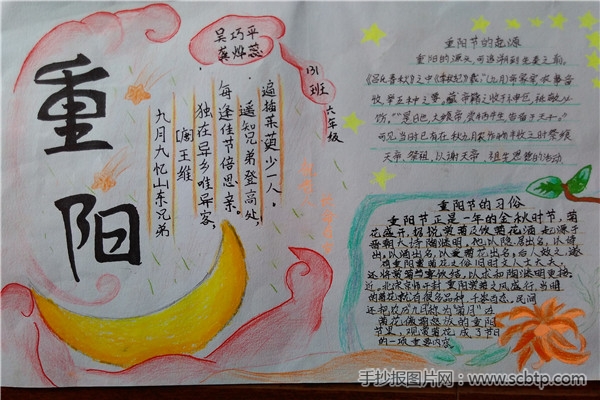 重阳
吴巧平
龚烨蕊
131班
六年级
九月九忆山东兄弟
[唐]王维
独在异乡唯异客,
每逢佳节倍思亲。
遥知兄弟登高处,
遍插茱萸少一人。
重阳节的起源
重阳的源头,可追溯到先秦之前。
《吕氏春秋》之中《季秋纪》载:"(九月)命家宰,农事备
收,举五种之要。藏帝籍之收于神仓,祗敬必
饬。""是日也,大飨帝,尝牺牲,告备于天子。"
可见当时已有在秋九月农作物丰收之时祭飨
天帝、祭祖,以谢天帝、祖先恩德的活动
重阳节的习俗
重阳节正是一年的金秋时节,菊
花盛开,据说赏菊及饮菊花酒,起源于
晋朝大诗陶渊明。他以隐居出名,以诗
出名,以酒出名,以爱菊花出名,后人效之,遂
有重阳赏菊之俗。旧时文人士大夫,
还将赏菊与宴饮结,以求和陶渊明更接
近。北宋京师开封,重阳赏菊之风盛行,当时
的菊花就有很多品种,千姿百态。民间
还把农历九月称为"菊月",在
菊花傲霜怒放的重阳
节里,观赏菊花成了节日
的一项重要内容
手抄报图片网:www.scbtp.com